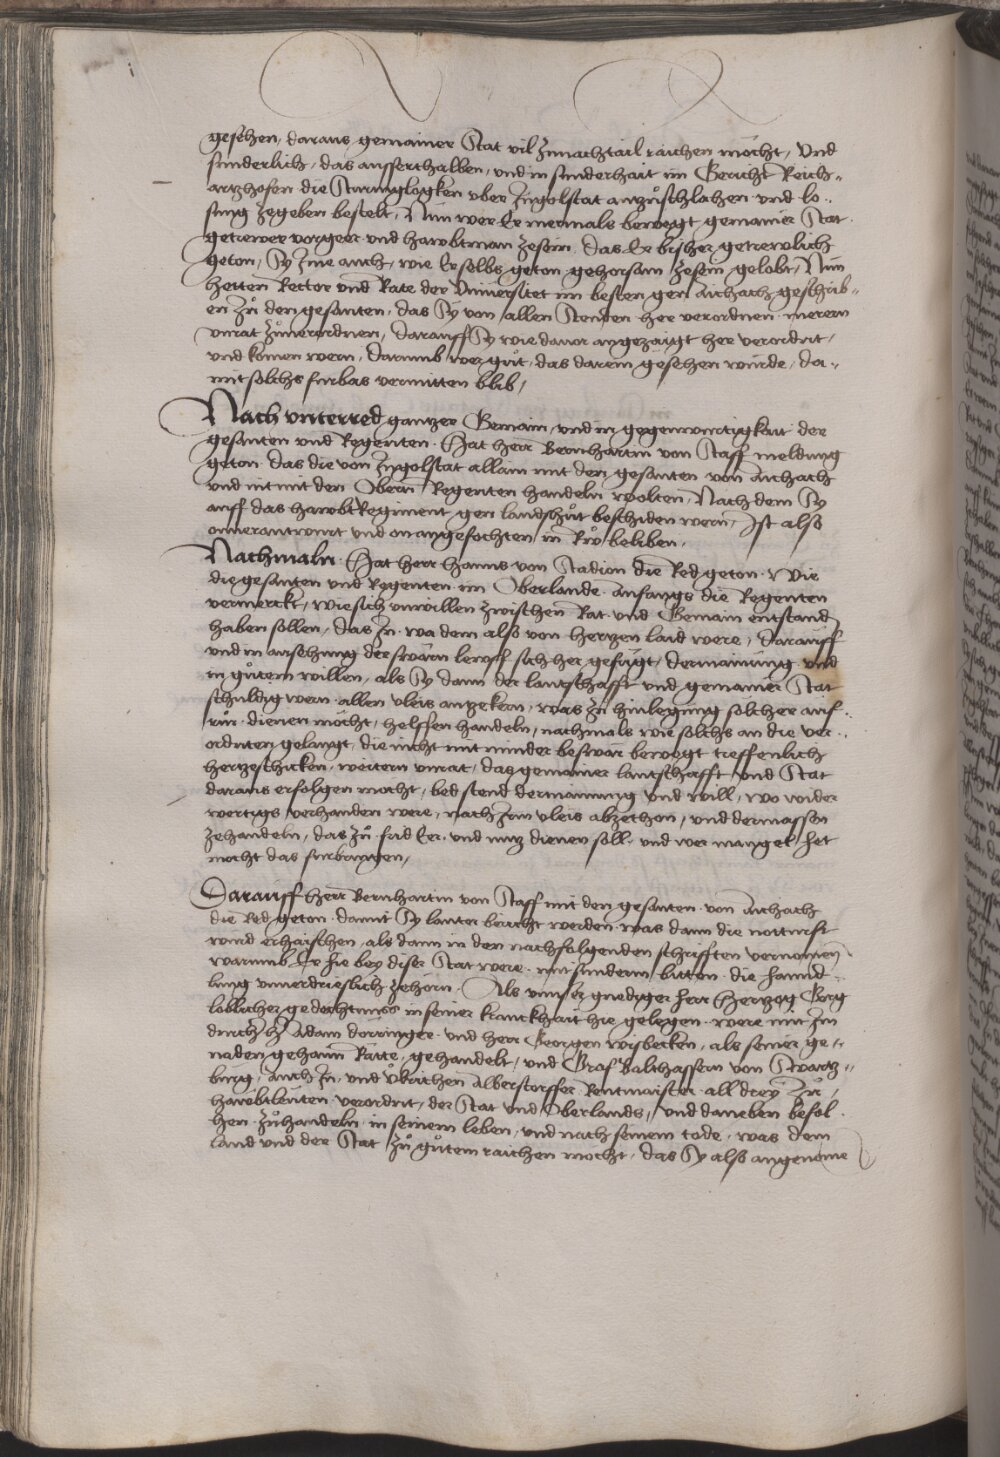 gesehen, daraus gemainer Stat vil zunachtail raichen möcht, Und
sunderlich, das ausserthalben, und in sunderhait im Gericht Reich„
artzhofen die Sturmglogken uber Ingolstat anzuschlahen und lo„
sung zegeben bestelt, Nun wer Er mermals bewegt gemainer Stat
getrewer vorgeer und hawbtman zesein, Das Er bisher getrewlich
geton, Sy Ime auch, wie Er selbs geton gehorsam zesein gelobt, Nun
hetten Rector und Rate der Universitet im besten gen Aichach geschrib„
en zu den gesanten, das Sy von allen Stenden her verordnen merern
unrat zuverordnen, Darauff Sy wie davor angezaigt her verordnt,
und komen wern, Darumb wer gut, das darein gesehen würde, da„
mit solchs furbas vermitten blib,
Nach unterred gantzer Gemain, und in gegenwurtigkait der
gesanten und Regenten. Hat herr Bernhartin von Stauff meldung
geton das die von Ingolstat allain mit den gesanten von Aichach
und nit mit den Obern Regenten handeln wolten, Nach dem Sy
auff das hawbt Regiment gen landshut beschiden wern, Ist also
onverantwurt und on angefochten in Rw beliben.
Nachmaln. Hat herr Hanns von Stadion die Red geton. Wie
die gesanten und Regenten im Oberlande anfangs die Regenten
vermerckt, wie sich unwillen zwischen Rat und Gemain entstand
haben sollen, das In wa dem also von hertzen laid were, Darauff
und in ansehung der swärn lewff sich her gefügt, der mainung und
in gutem willen, als Sy dann der lantschafft und gemainer Stat
schuldig wern allen vleis anzekern, was zu hinlegung solcher auf„
rur dienen möcht, helffen handeln, nachmals wie solchs an die ver„
ordnten gelangt, die nicht mit minder beswär bewegt treffenlich
herzeschicken, weitern unrat, das gemainer lantschafft und Stat
daraus erfolgen möcht, bed stend der mainung und will, wo wider„
wertigs verhanden were, nach Irm vleis abzethon, und dermassen
zehandeln, das zu frid Er und nutz dienen soll, und wer manget, het
möcht das furbringen,
Darauff herr Bernhartin von Stauff mit den gesanten von Aichach
die Red geton. damit Sy lauter bericht werden. was dann die notturft
wird erhaischen, als dann in den nachfolgenden schrifften vernomen
warumb Er hie bey diser Stat were. mit sunderm bitten die hannd„
lung unverdrieslich zehörn. Als unnser gnediger herr Hertzog Georg
loblicher gedechtnuss in seiner kranckhait hie gelegen. were mit Im
durch H. Adam dörringer und herr Georgen wisbecken, als seiner ge„
naden gehaim Räte, gehandelt, und Graf Balthassern von Swartz„
burg, auch In, und Ulrichen Alberstorffer Rentmaister all drey zu
hawbtleuten verordnt, der Stat und Oberlands, und daneben befol„
hen zuhandeln in seinem leben, und nach seinem tode, was dem
land und der Stat zu gutem raichen möcht, das Sy also angenome